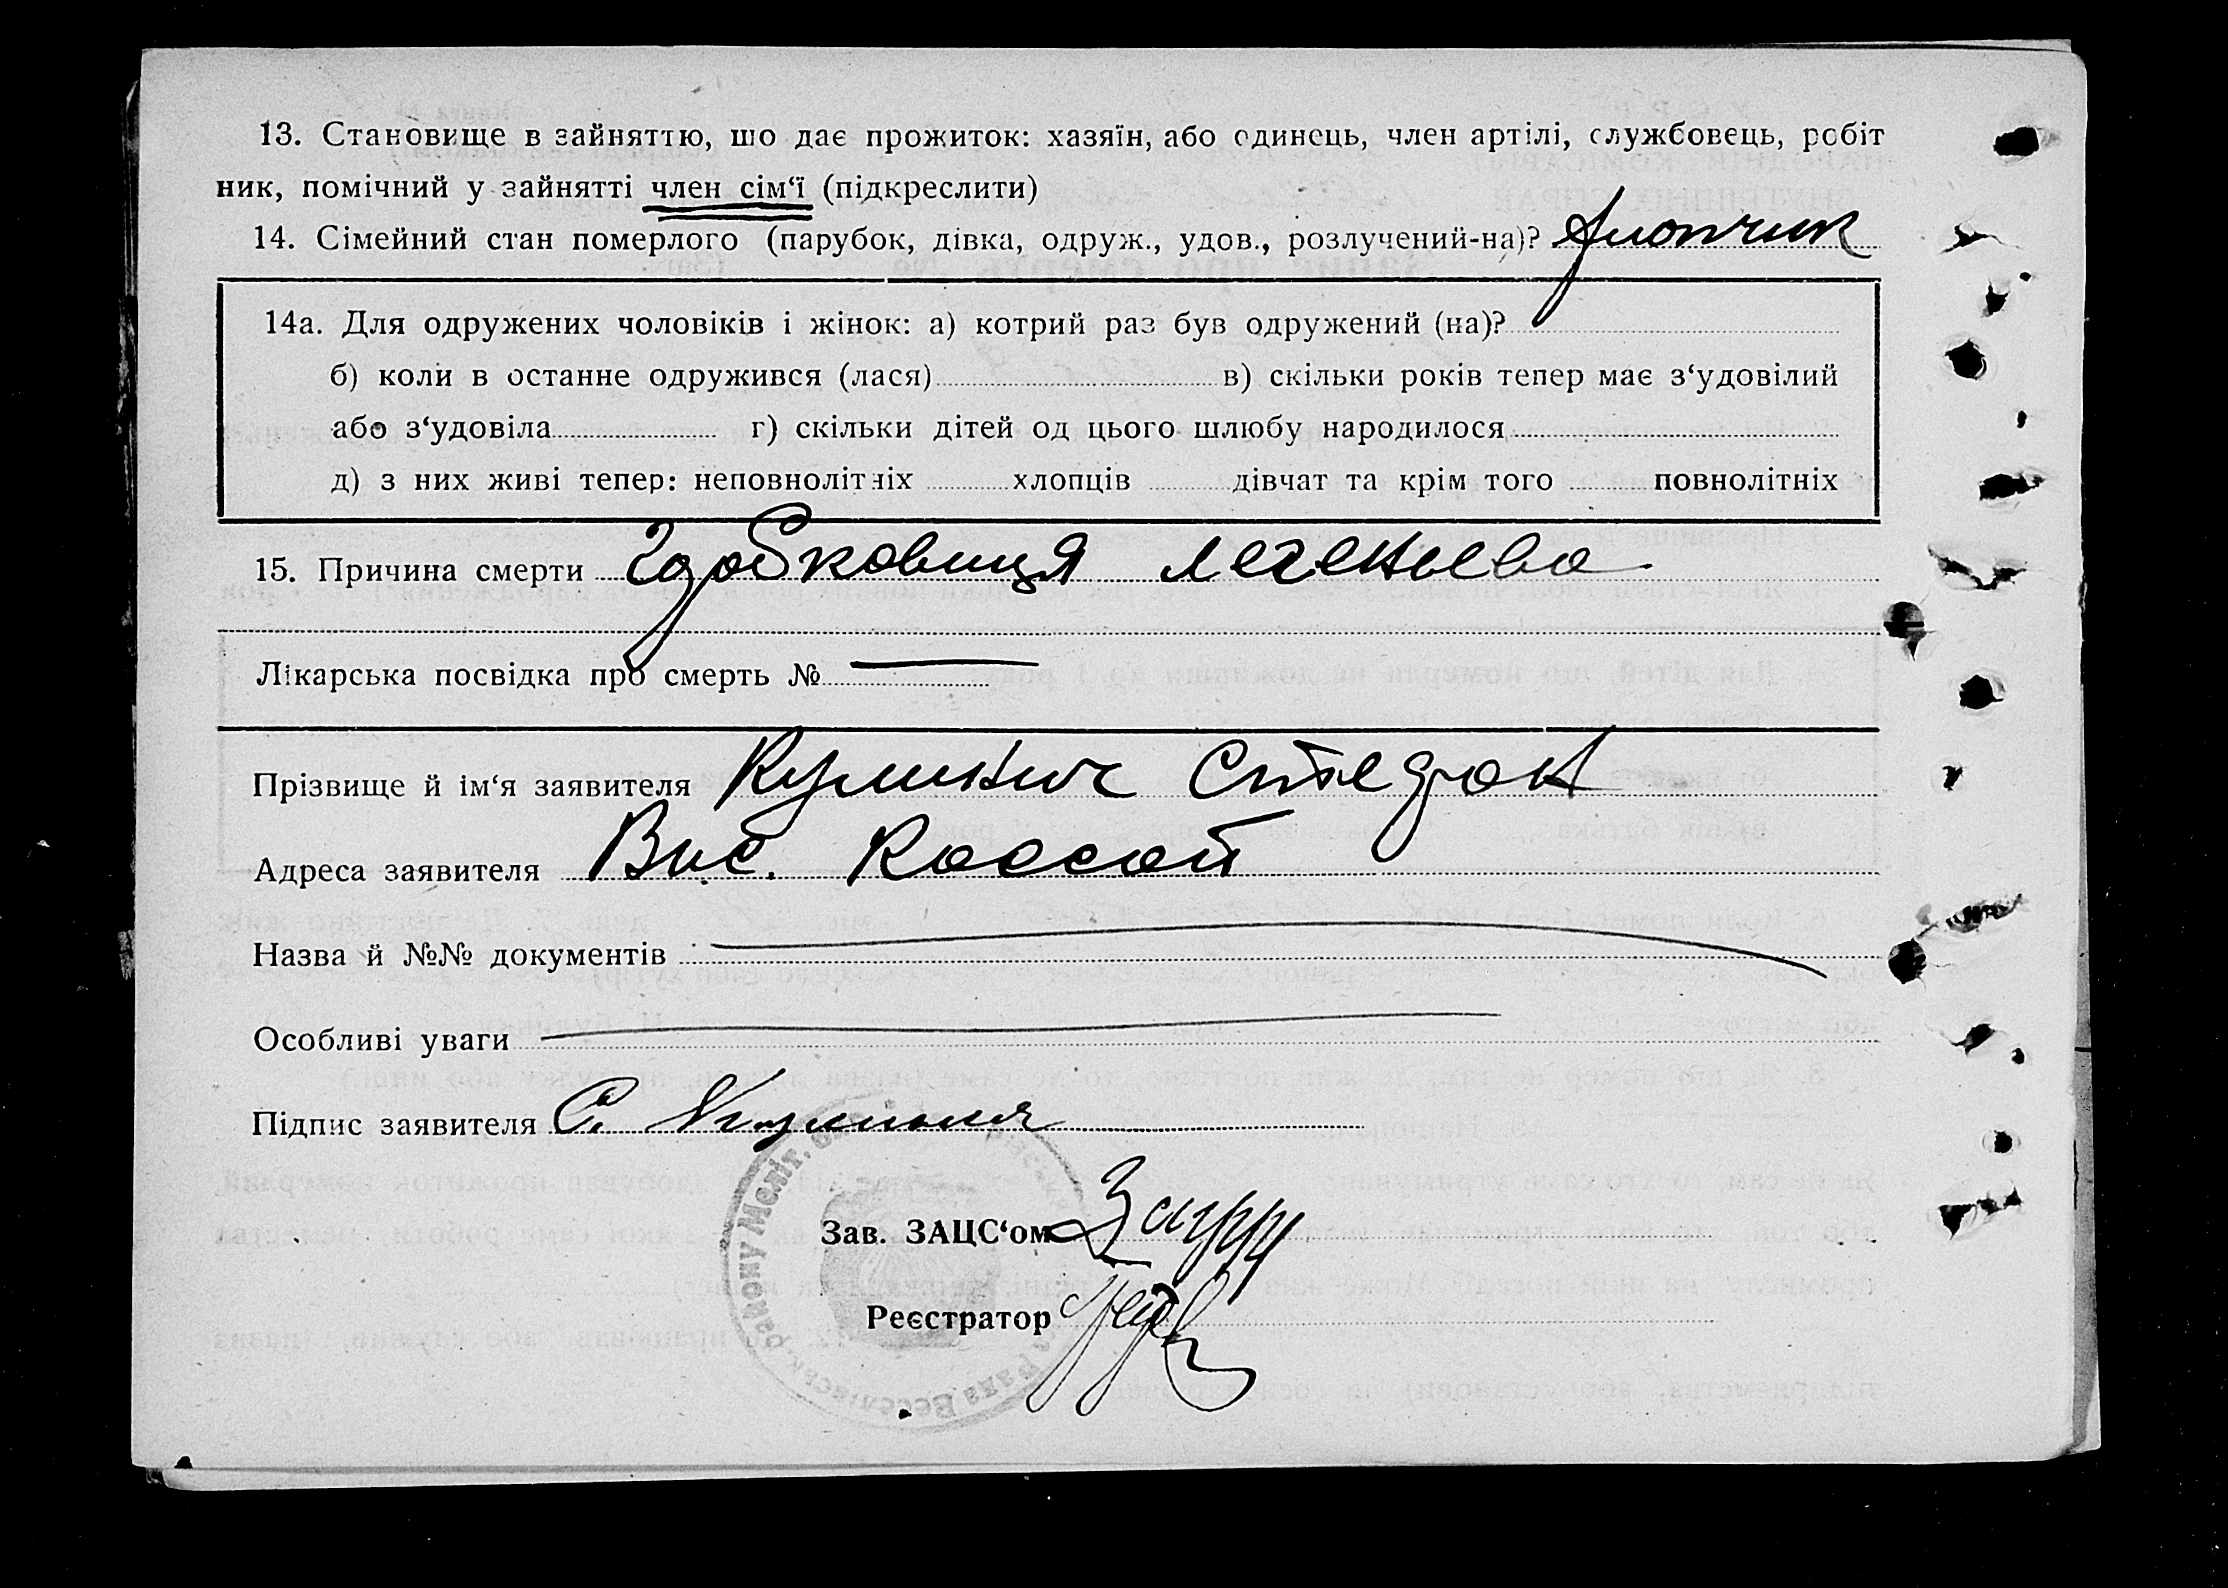 13. Становище в зайняттю, шо дає прожиток: хазяїн, або одинець, член артілі, службовець, робіт
ник, помічний у зайнятті член сім‘ї (підкреслити)
14. Сімейний стан померлого (парубок, дівка, одруж., удов., розлучений-на)? хлопчик
14а. Для одружених чоловіків і жінок: а) котрий раз був одружений (на)?
б) коли в останне одружився (лася) в) скільки років тепер має з‘удовілий
або з‘удовіла г) скільки дітей од цього шлюбу народилося
д) з них живі тепер: неповнолітніх хлопців дівчат та крім того повнолітніх
15. Причина смерти здобковиця легеньева
Лікарська посвідка про смерть №
Прізвище й ім‘я заявителя Куминич Стедрон
Адреса заявителя Виб.
Назва й №№ документів
Особливі уваги
Підпис заявителя С.
Зав. ЗАЦС‘ом
Реєстратор
району Меліт.
Рада Веселівськ.